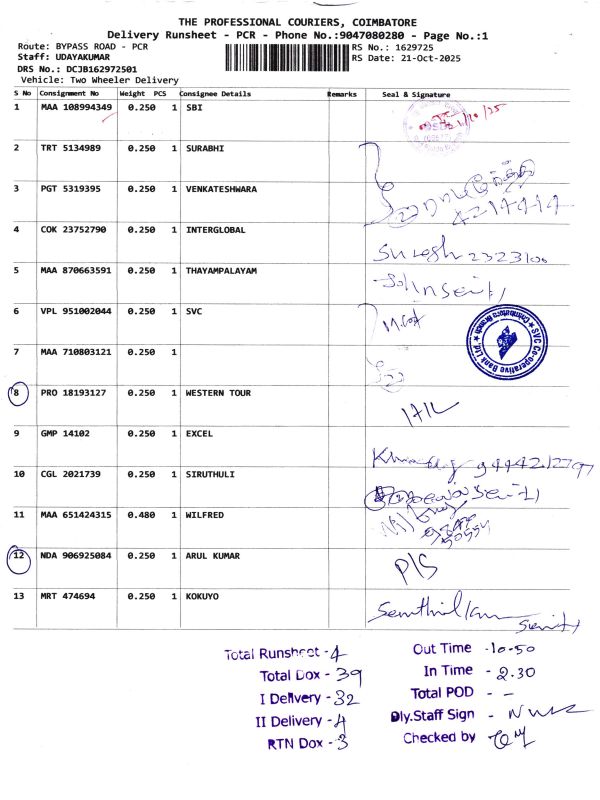 THE PROFESSIONAL COURIERS, COIMBATORE
Delivery Runsheet - PCR - Phone No.:9047080280 - Page No.:1
Route: BYPASS ROAD - PCR
RS No.: 1629725
Staff: UDAYAKUMAR
RS Date: 21-Oct-2025
DRS No.: DCJB162972501
Vehicle: Two Wheeler Delivery
S No Consignment No Weight PCS Consignee Details Remarks Seal & Signature
1 MAA 108994349 0.250 1 SBI
2 TRT 5134989 0.250 1 SURABHI
3 PGT 5319395 0.250 1 VENKATESHWARA
4 COK 23752790 0.250 1 INTERGLOBAL Suresh
5 MAA 870663591 0.250 1 THAYAMPALAYAM
6 VPL 951002044 0.250 1 SVC
SVC Co-operative Bank Ltd. Coimbatore Branch
7 MAA 710803121 0.250 1
8 PRO 18193127 0.250 1 WESTERN TOUR
9 GMP 14102 0.250 1 EXCEL
10 CGL 2021739 0.250 1 SIRUTHULI
11 MAA 651424315 0.480 1 WILFRED
12 NDA 906925084 0.250 1 ARUL KUMAR P/S
13 MRT 474694 0.250 1 KOKUYO
Total Runsheet - 4
Total Dox - 39
I Delivery - 32
II Delivery - 4
RTN Dox - 3
Out Time - 10-50
In Time - 2.30
Total POD - -
Dly.Staff Sign -
Checked by